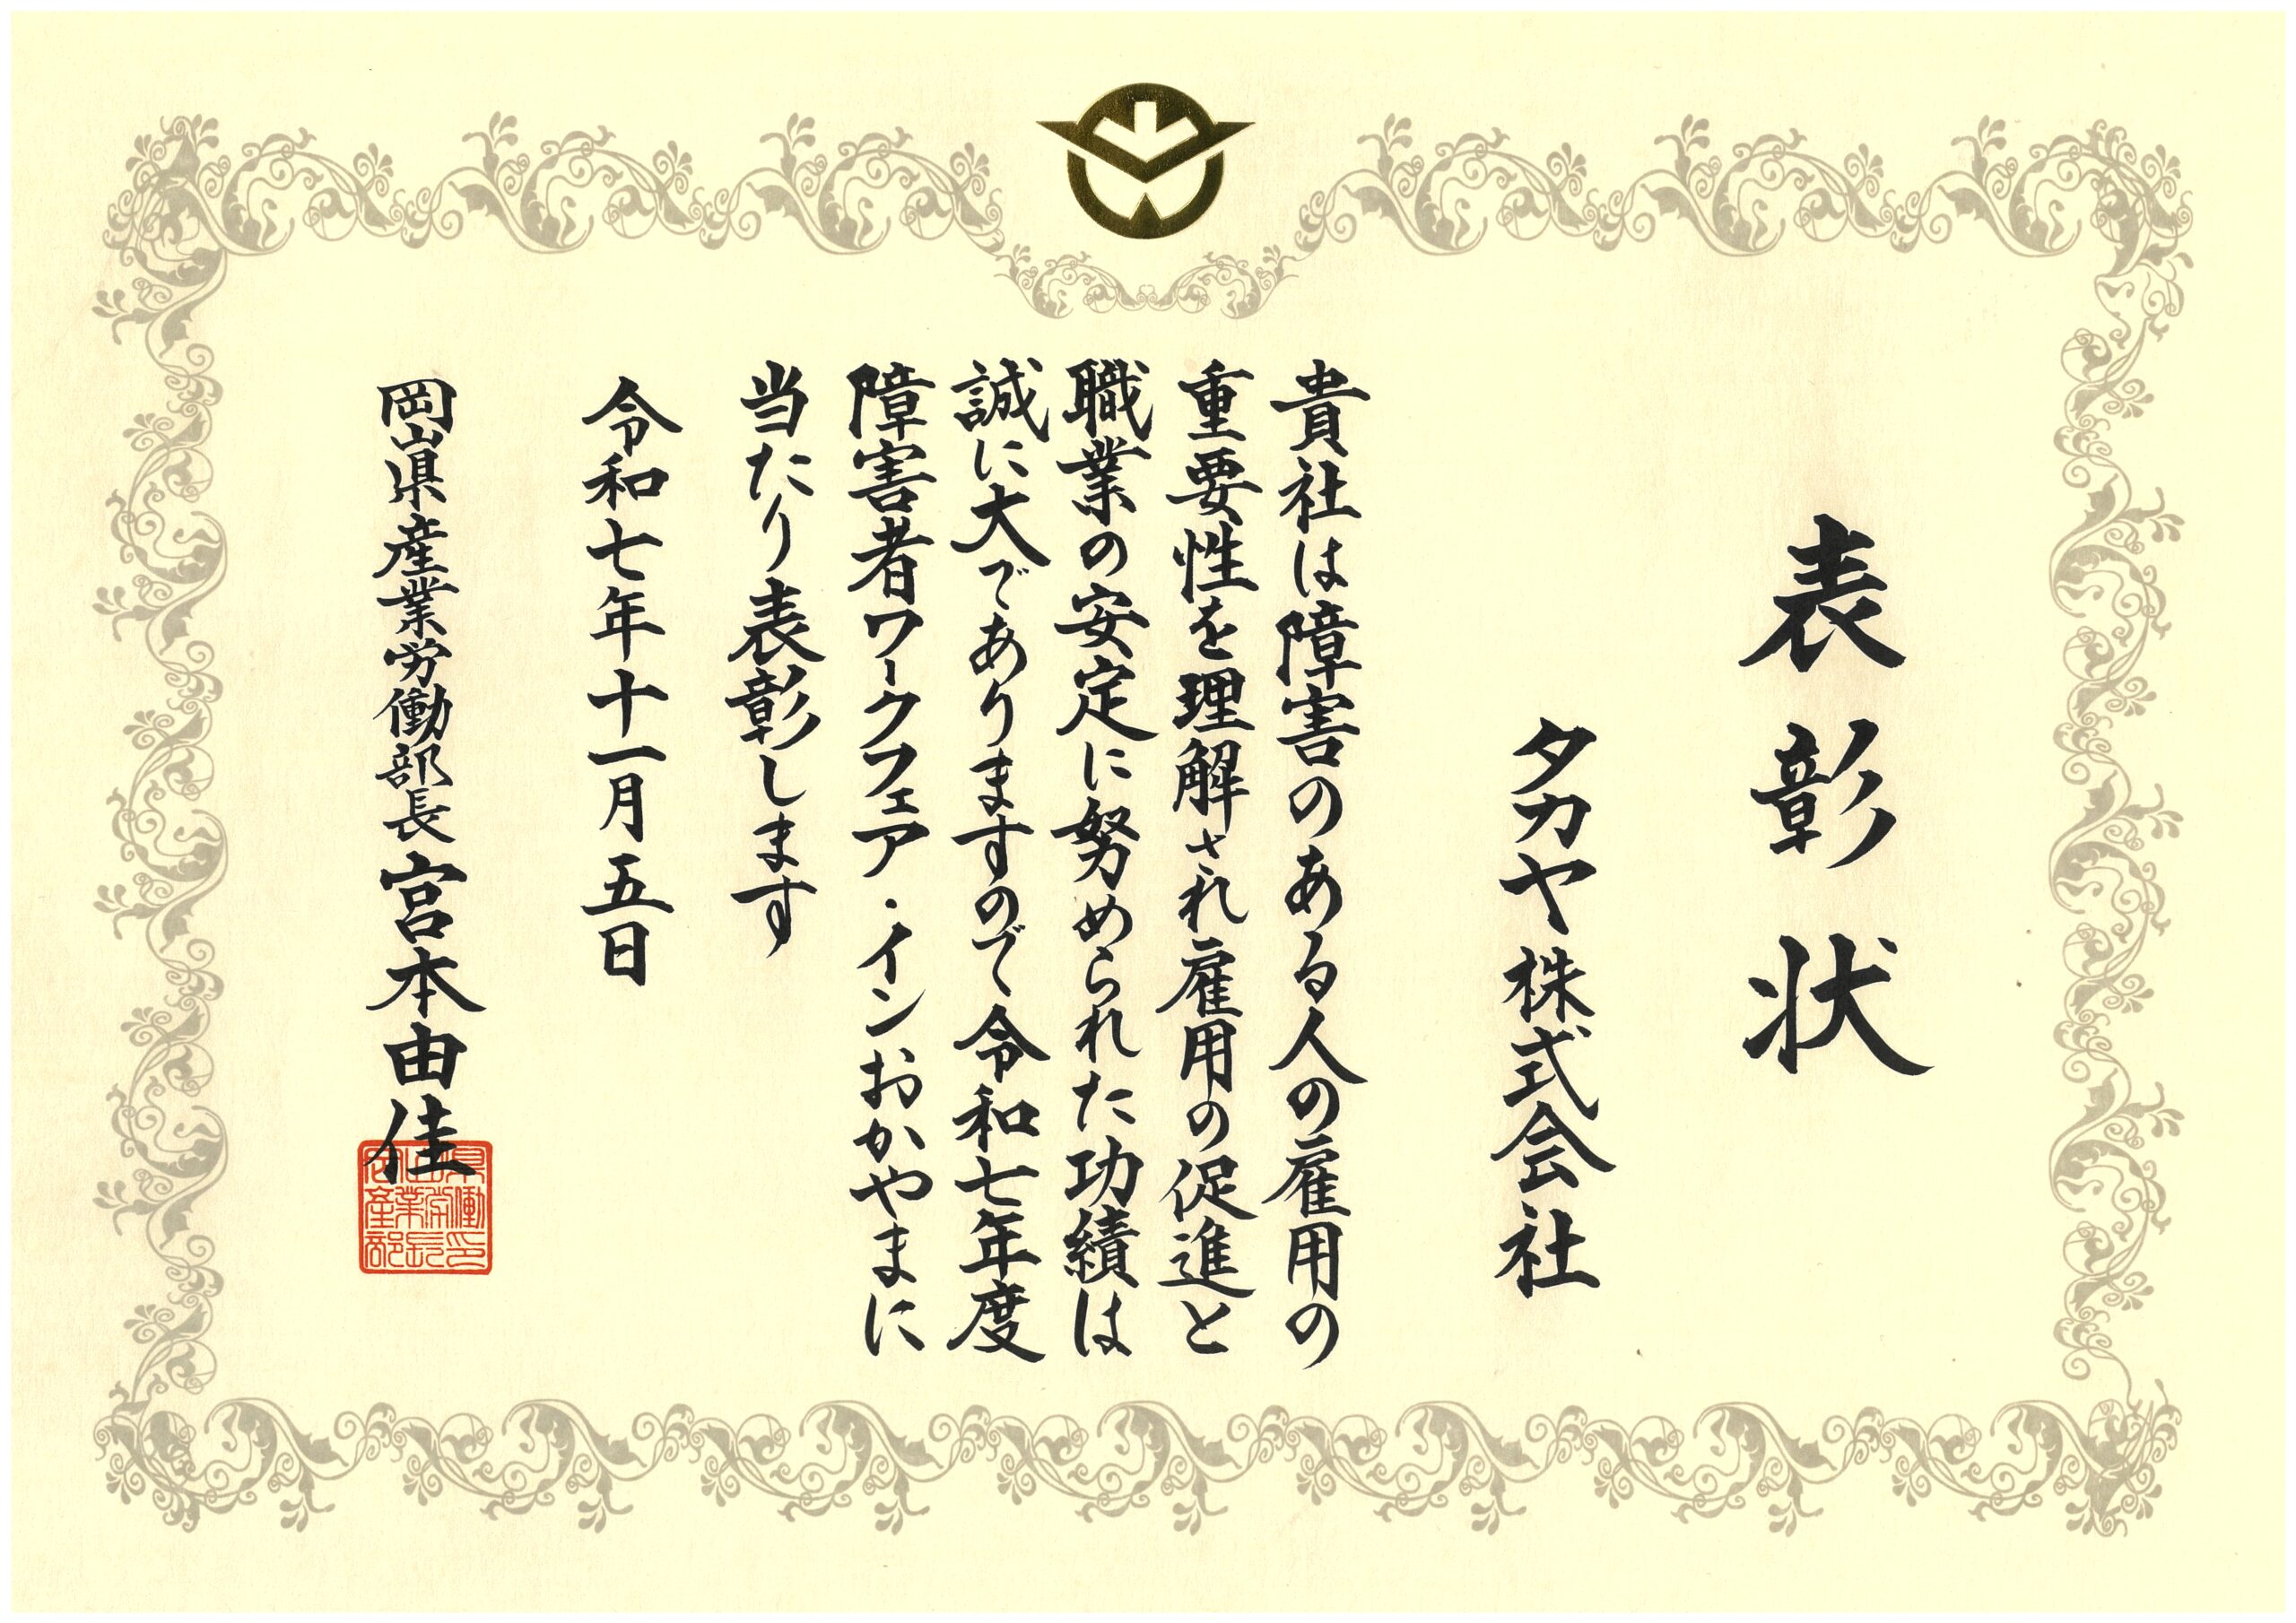 表彰状
タカヤ株式会社
貴社は障害のある人の雇用の
重要性を理解され雇用の促進と
職業の安定に努められた功績は
誠に大でありますので令和七年度
障害者ワークフェア・インおかやまに
当たり表彰します
令和七年十一月五日
岡山県産業労働部長 宮本由佳